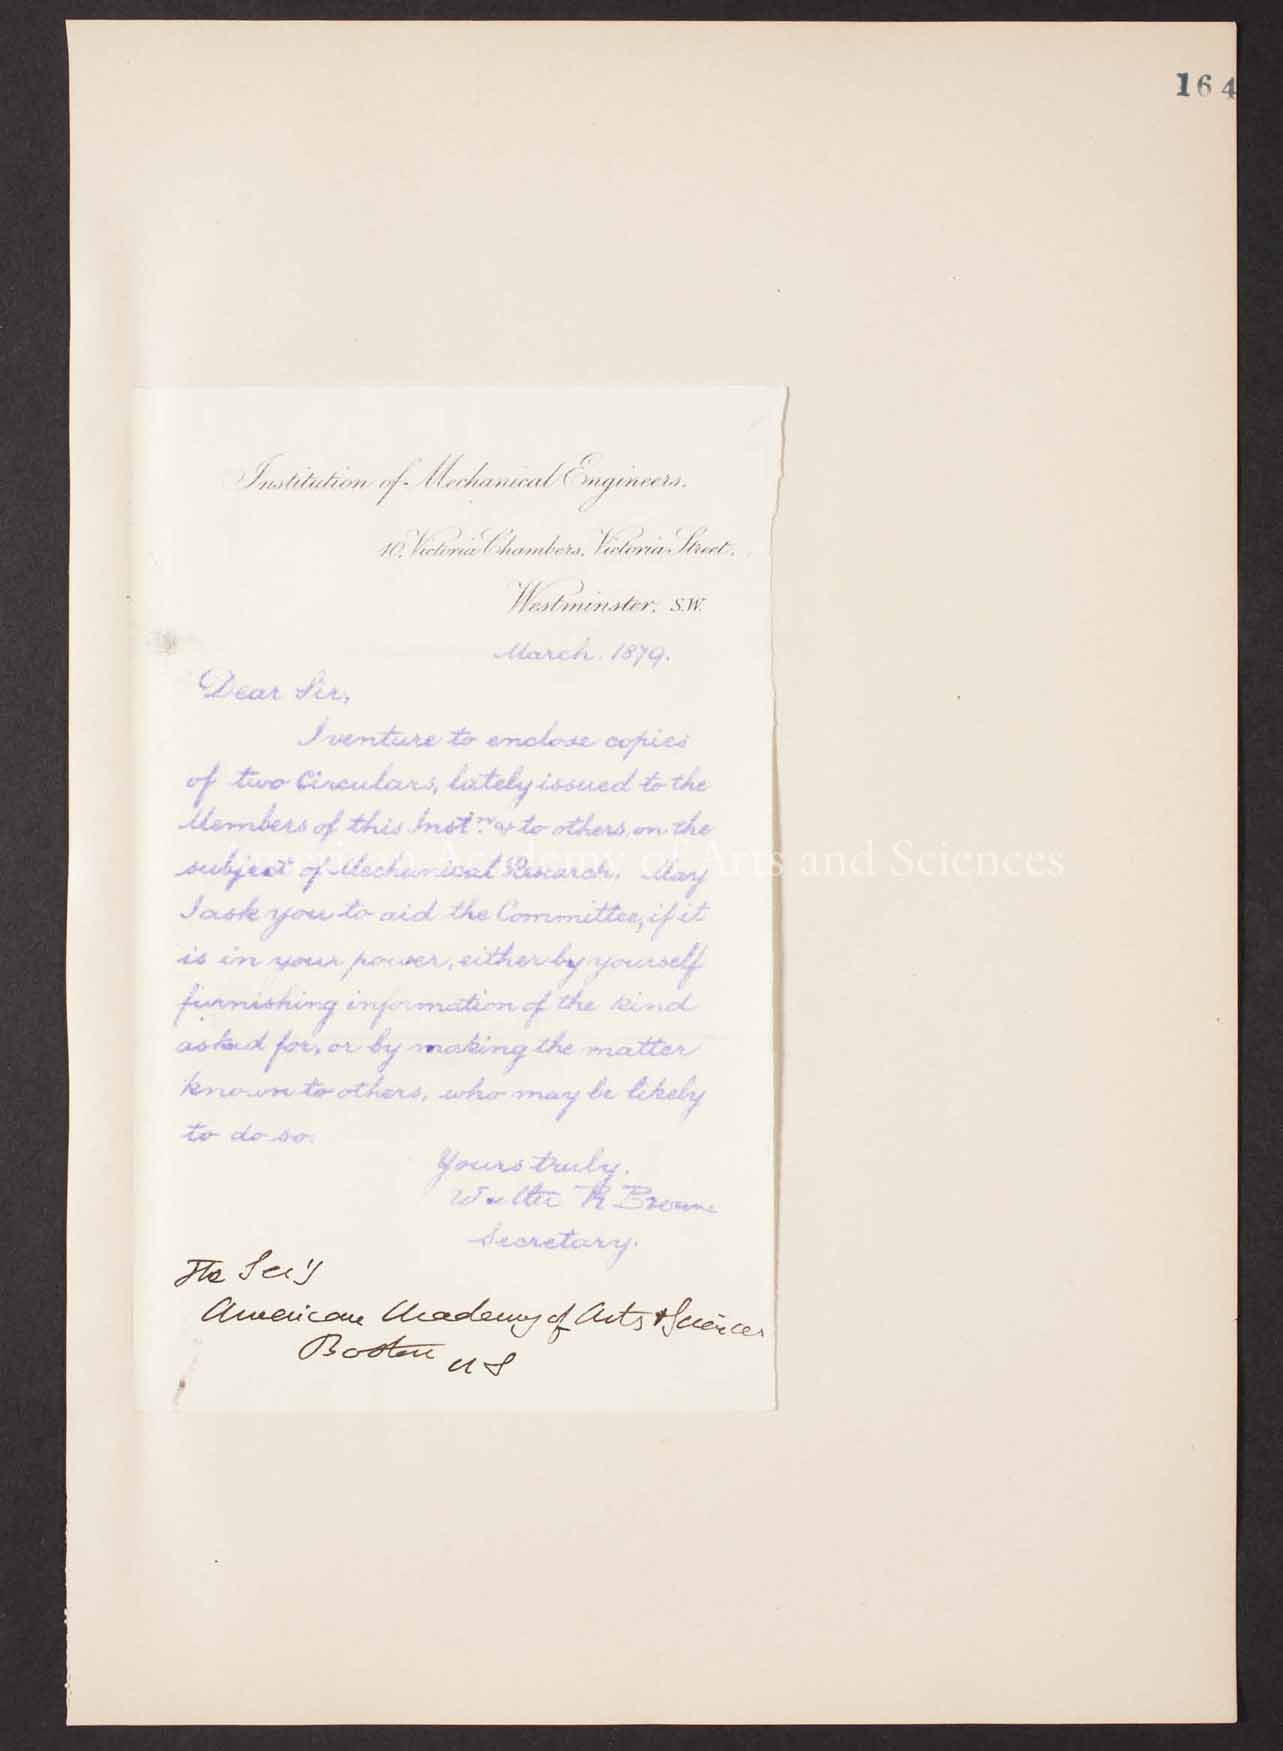 164
Institution of Mechanical Engineers.
10, Victoria Chambers, Victoria Street,
Westminster, S.W.
March. 1879.
Dear Sir,
I venture to enclose copies
of two Circulars, lately issued to the
Members of this Instn. & to others, on the
subject of Mechanical Research. May
I ask you to aid the Committee, if it
is in your power, either by yourself
furnishing information of the kind
asked for, or by making the matter
known to others, who may be likely
to do so.
Yours truly.
Walter R Browne
Secretary.
The Sec'y
American Academy of Arts & Sciences
Boston U S
American Academy of Arts and Sciences